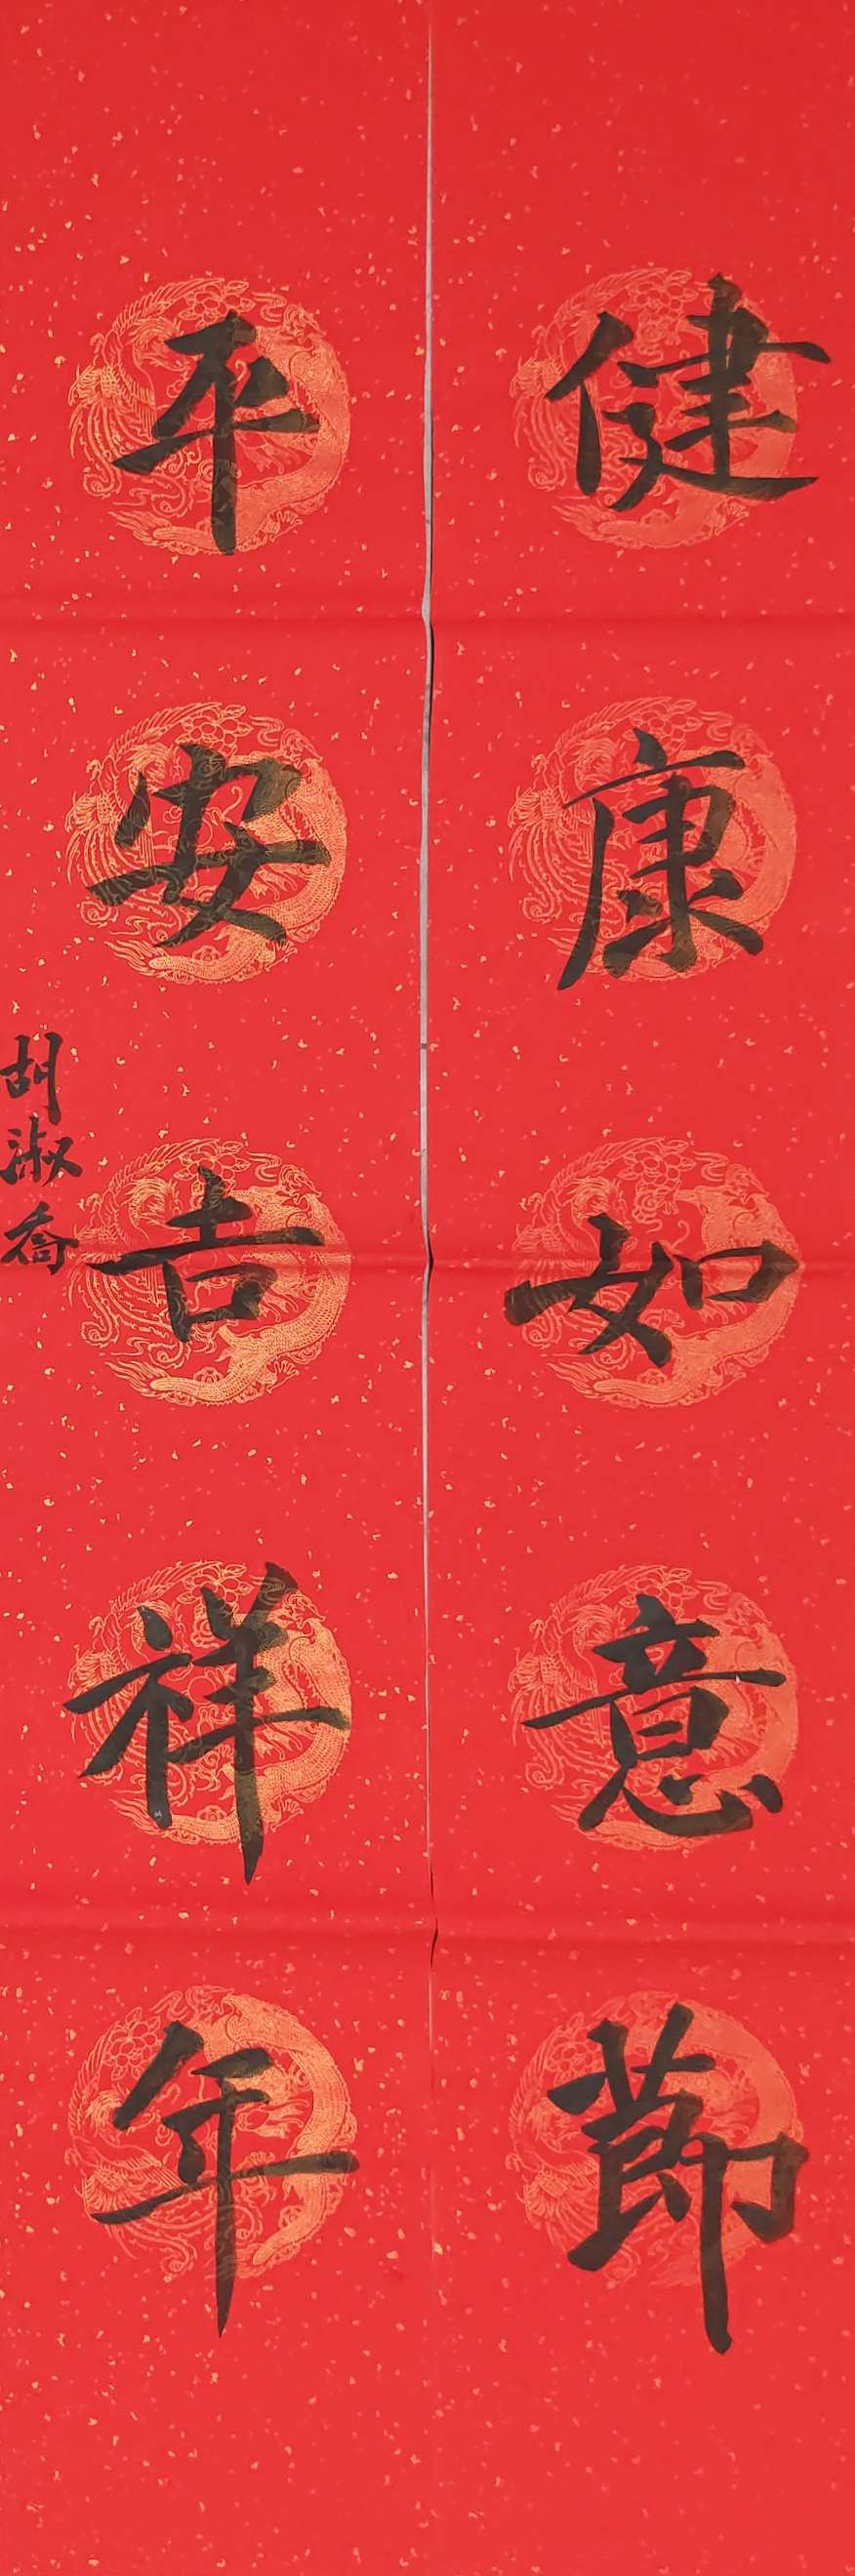 健康如意節
平安吉祥年
胡淑喬